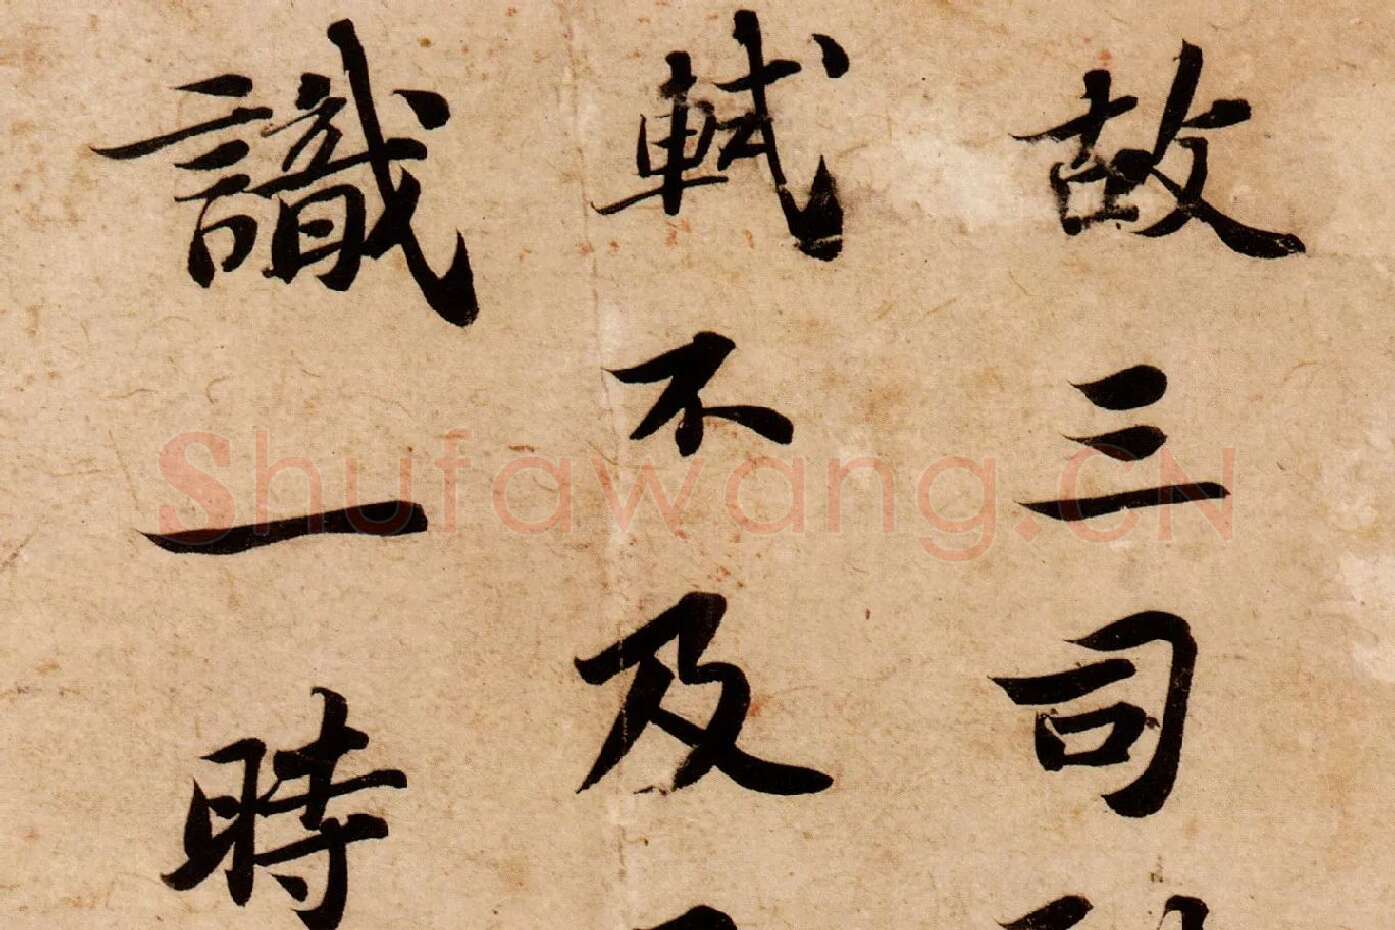 故三司
軾不及
識一時
Shufawang.CN